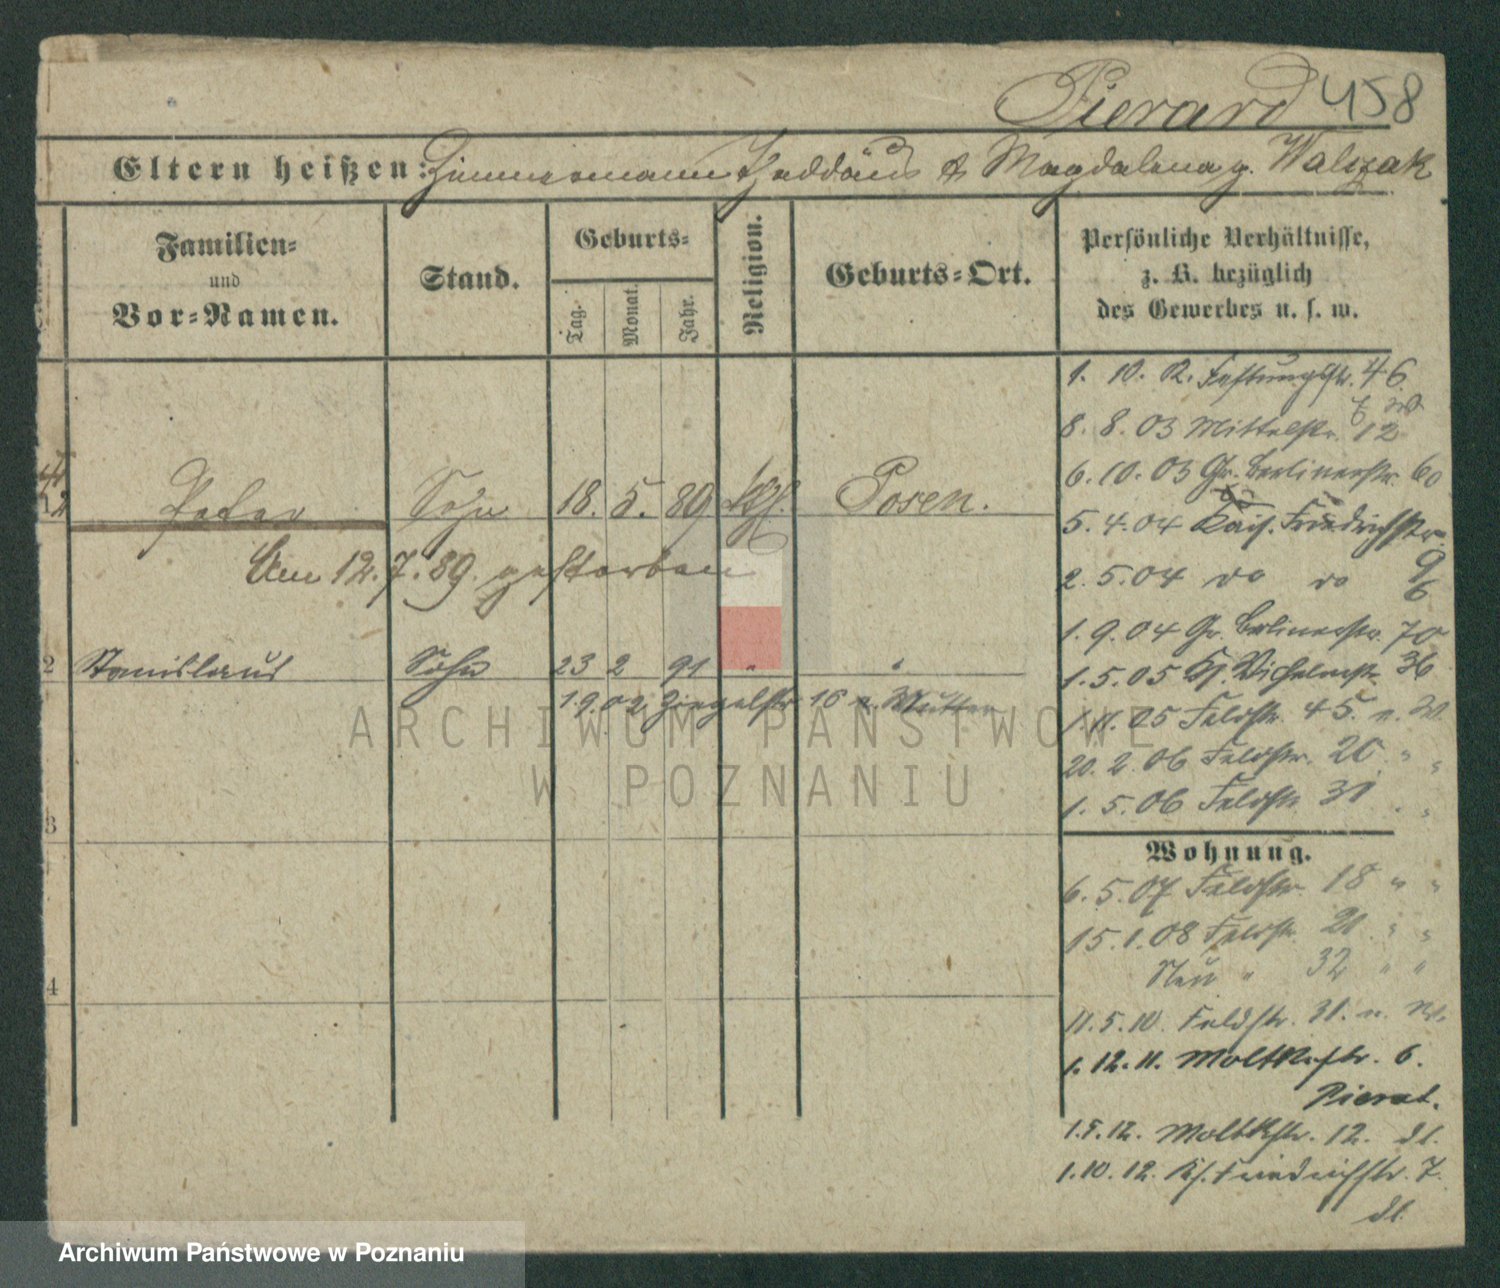 Pierard 458
Eltern heißen: Zimmermann Thaddäus & Magdalena g. Walczak
Familien-
und
Vor-Namen.
Stand.
Geburts-
Tag.
Monat.
Jahr.
Religion.
Geburts-Ort.
Persönliche Verhältnisse,
z. B. bezüglich
des Gewerbes u. s. w.
1. 10. 12. Festungsstr. 46
8. 8. 03 Mittelstr. 12
6. 10. 03 Gr. Berlinerstr. 60
5. 4. 04 Kais. Friedrichstr.
2. 5. 04 do do 9
6
1. 9. 04 Gr. Berlinerstr. 70
1. 5. 05 Wilhelmstr. 36
1. 11. 05 Feldstr. 45.
20. 2. 06 Feldstr. 20 " "
1. 5. 06 Feldstr. 31 " "
Peter Sohn 18. 5. 89 Kth. Posen.
Am 12. 7. 89. gestorben
2 Stanislaus Sohn 23 2 91 " "
1.9.02 Ziegelstr. 16 Mutter
3
4
Wohnung.
6. 5. 07 Feldstr. 18 " "
15. 1. 08 Feldstr. 21 " "
Neu " 32 " "
11. 5. 10. Feldstr. 31.
1. 12. 11. Moltkestr. 6.
Pierat.
1. 5. 12. Moltkestr. 12. dl.
1. 10. 12. Ks. Friedrichstr. 7.
dl.
ARCHIWUM PAŃSTWOWE
W POZNANIU
Archiwum Państwowe w Poznaniu